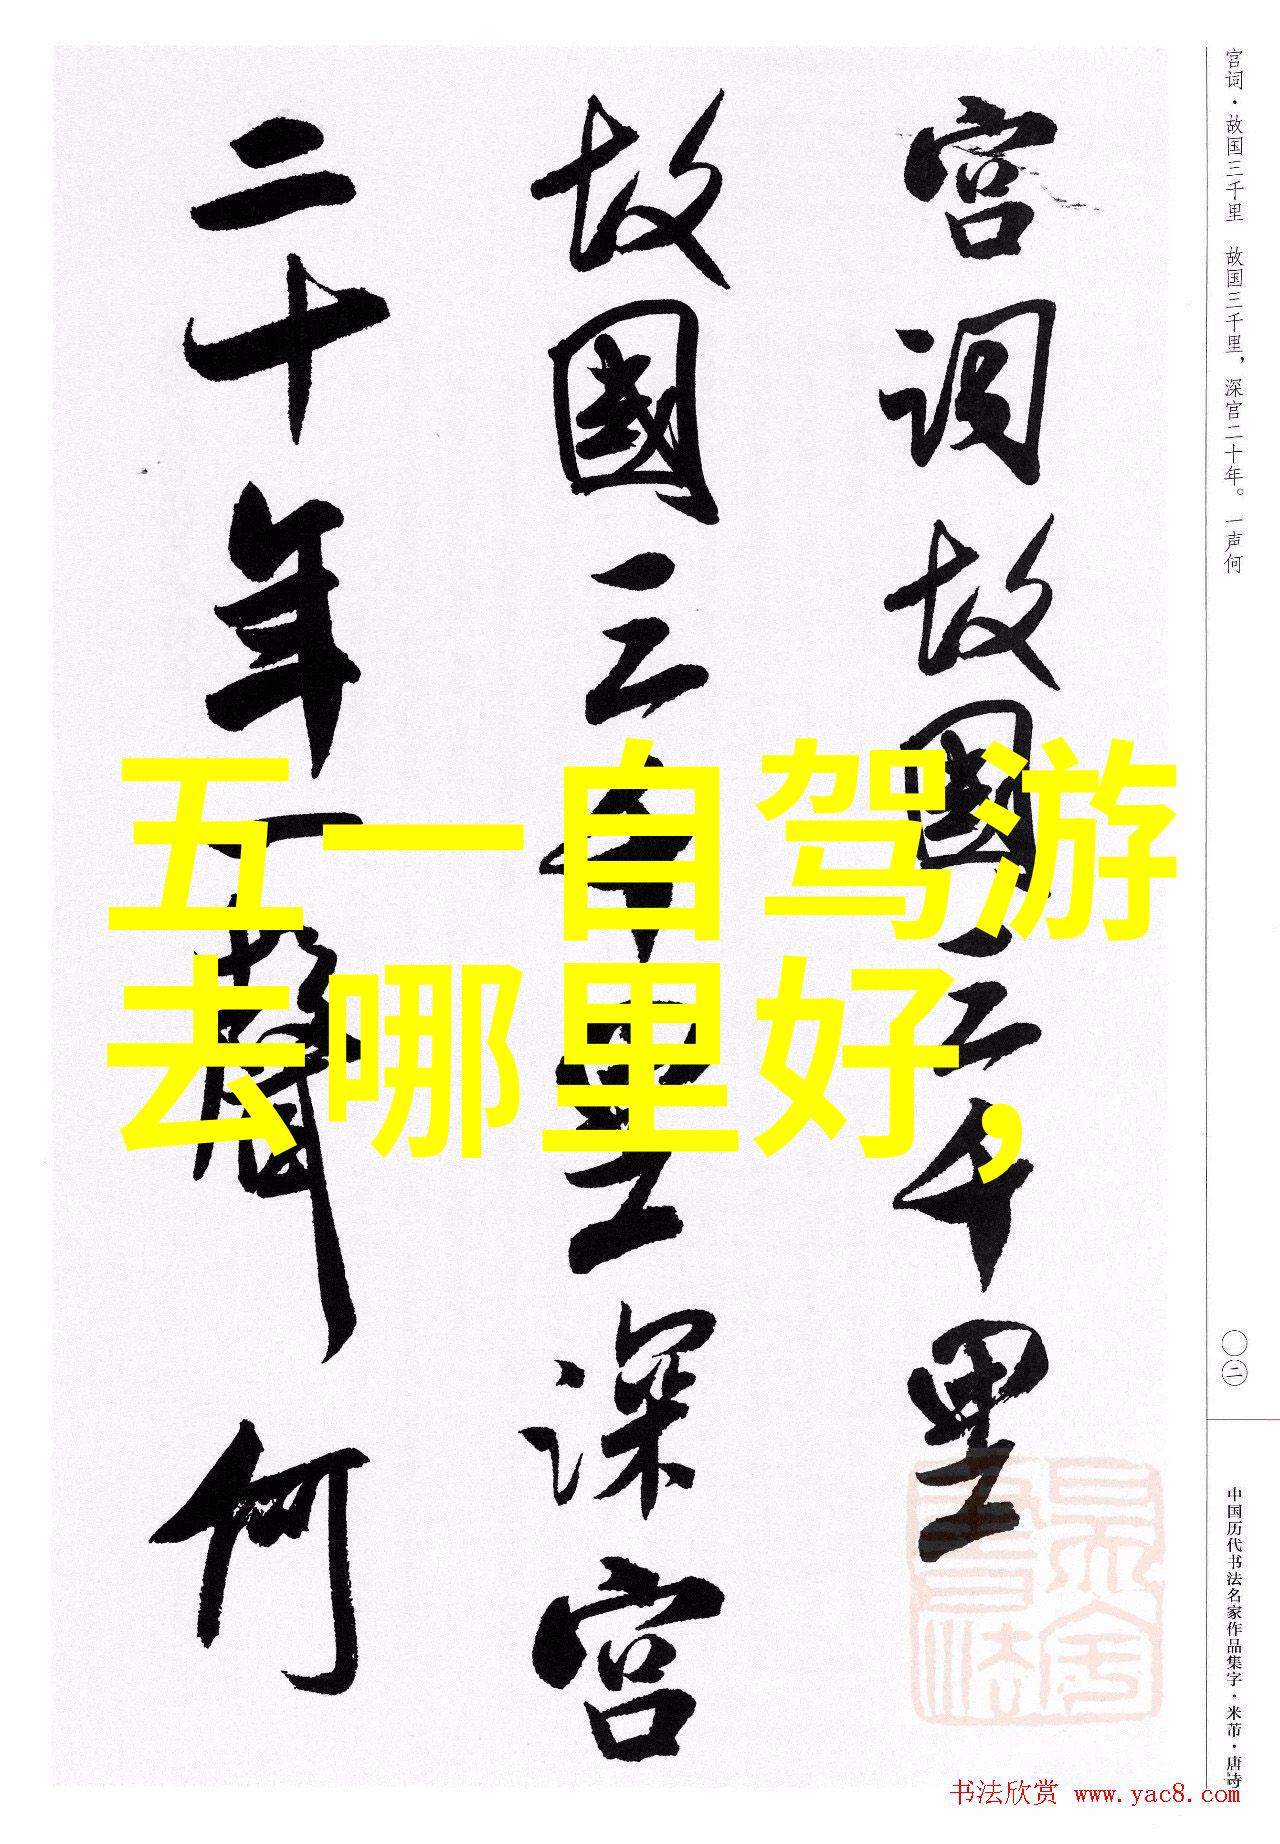 宫词故國三千里
故國三千里深宫
二十年一聲何
五一自驾游
去哪里好，
宫词·故国三千里 故国三千里，深宫二十年。一声何
〇二
中国历代书法名家作品集字·米芾·唐诗
书法欣赏 www.yac8.com